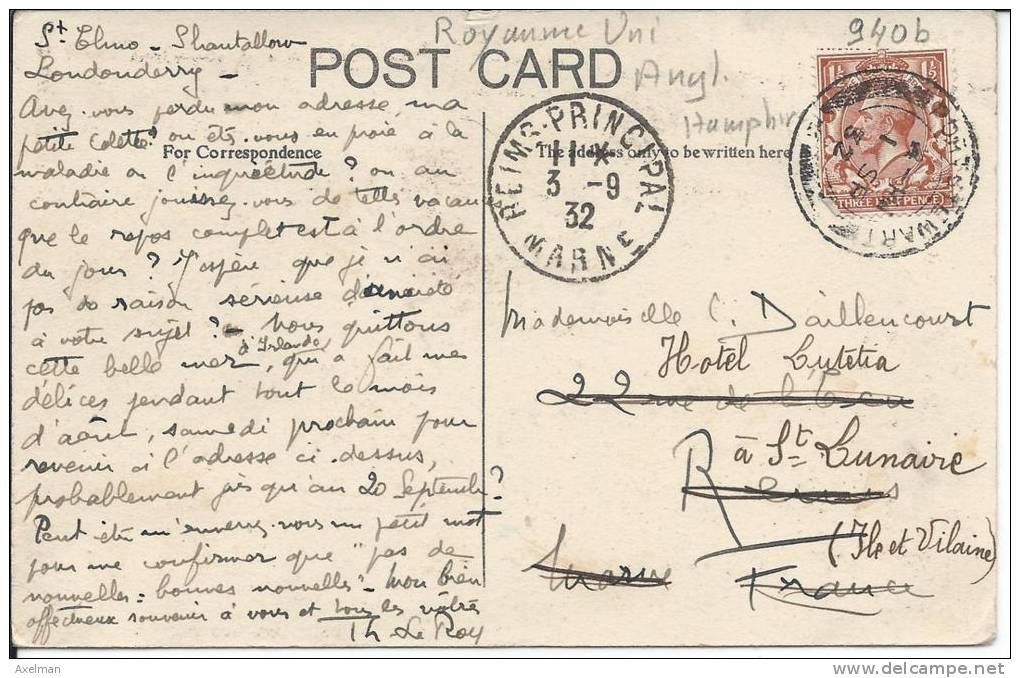 St Elmo - Shantallow
Londonderry -
Royaume Uni
Angl.
940b
POST CARD
For Correspondence
The address only to be written here
REIMS-PRINCIPAL
3 -9
32
MARNE
THREE HALF PENCE
Avez-vous perdu mon adresse, ma
petite Colette? ou êtes-vous en proie à la
maladie ou l'inquiétude? ou au
contraire jouissez-vous de telles vacan
que le repos complet est à l'ordre
du jour? J'espère que je n'ai
pas de raison sérieuse d'anxiété
à votre sujet? - Nous quittons
cette belle mer d'Irlande, qui a fait mes
délices pendant tout le mois
d'août, samedi prochain pour
revenir à l'adresse ci-dessus,
probablement jusqu'au 20 Septembre?
Peut-être m'enverrez-vous un petit mot
pour me confirmer que "pas de
nouvelles = bonnes nouvelles". Mon bien
affectueux souvenir à vous et tous les vôtres
Th Le Roy
Mademoiselle C. Daillencourt
Hotel Lutetia
22 rue de l'Ecu
à St Lunaire
Reims
(Ile et Vilaine)
Marne
France
Axelman
delcampe.net